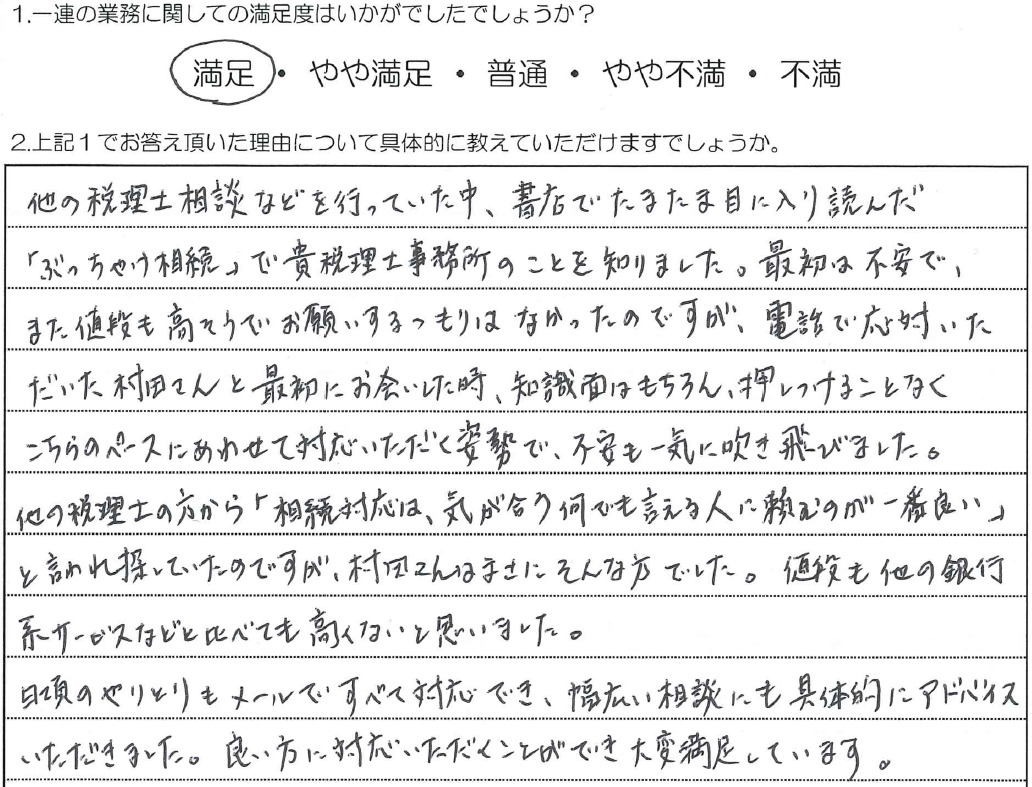 1.一連の業務に関しての満足度はいかがでしたでしょうか？
満足・やや満足・普通・やや不満・不満
2.上記１でお答え頂いた理由について具体的に教えていただけますでしょうか。
他の税理士相談などを行っていた中、書店でたまたま目に入り読んだ
「ぶっちゃけ相続」で貴税理士事務所のことを知りました。最初は不安で、
また値段も高そうでお願いするつもりはなかったのですが、電話で応対いた
だいた村田さんと最初にお会いした時、知識面はもちろん、押しつけることなく
こちらのペースにあわせて対応いただく姿勢で、不安も一気に吹き飛びました。
他の税理士の方から「相続対応は、気が合う何でも言える人に頼むのが一番良い」
と言われ探していたのですが、村田さんはまさにそんな方でした。値段も他の銀行
系サービスなどと比べても高くないと思いました。
日頃のやりとりもメールですべて対応でき、幅広い相談にも具体的にアドバイス
いただきました。良い方に対応いただくことができ大変満足しています。